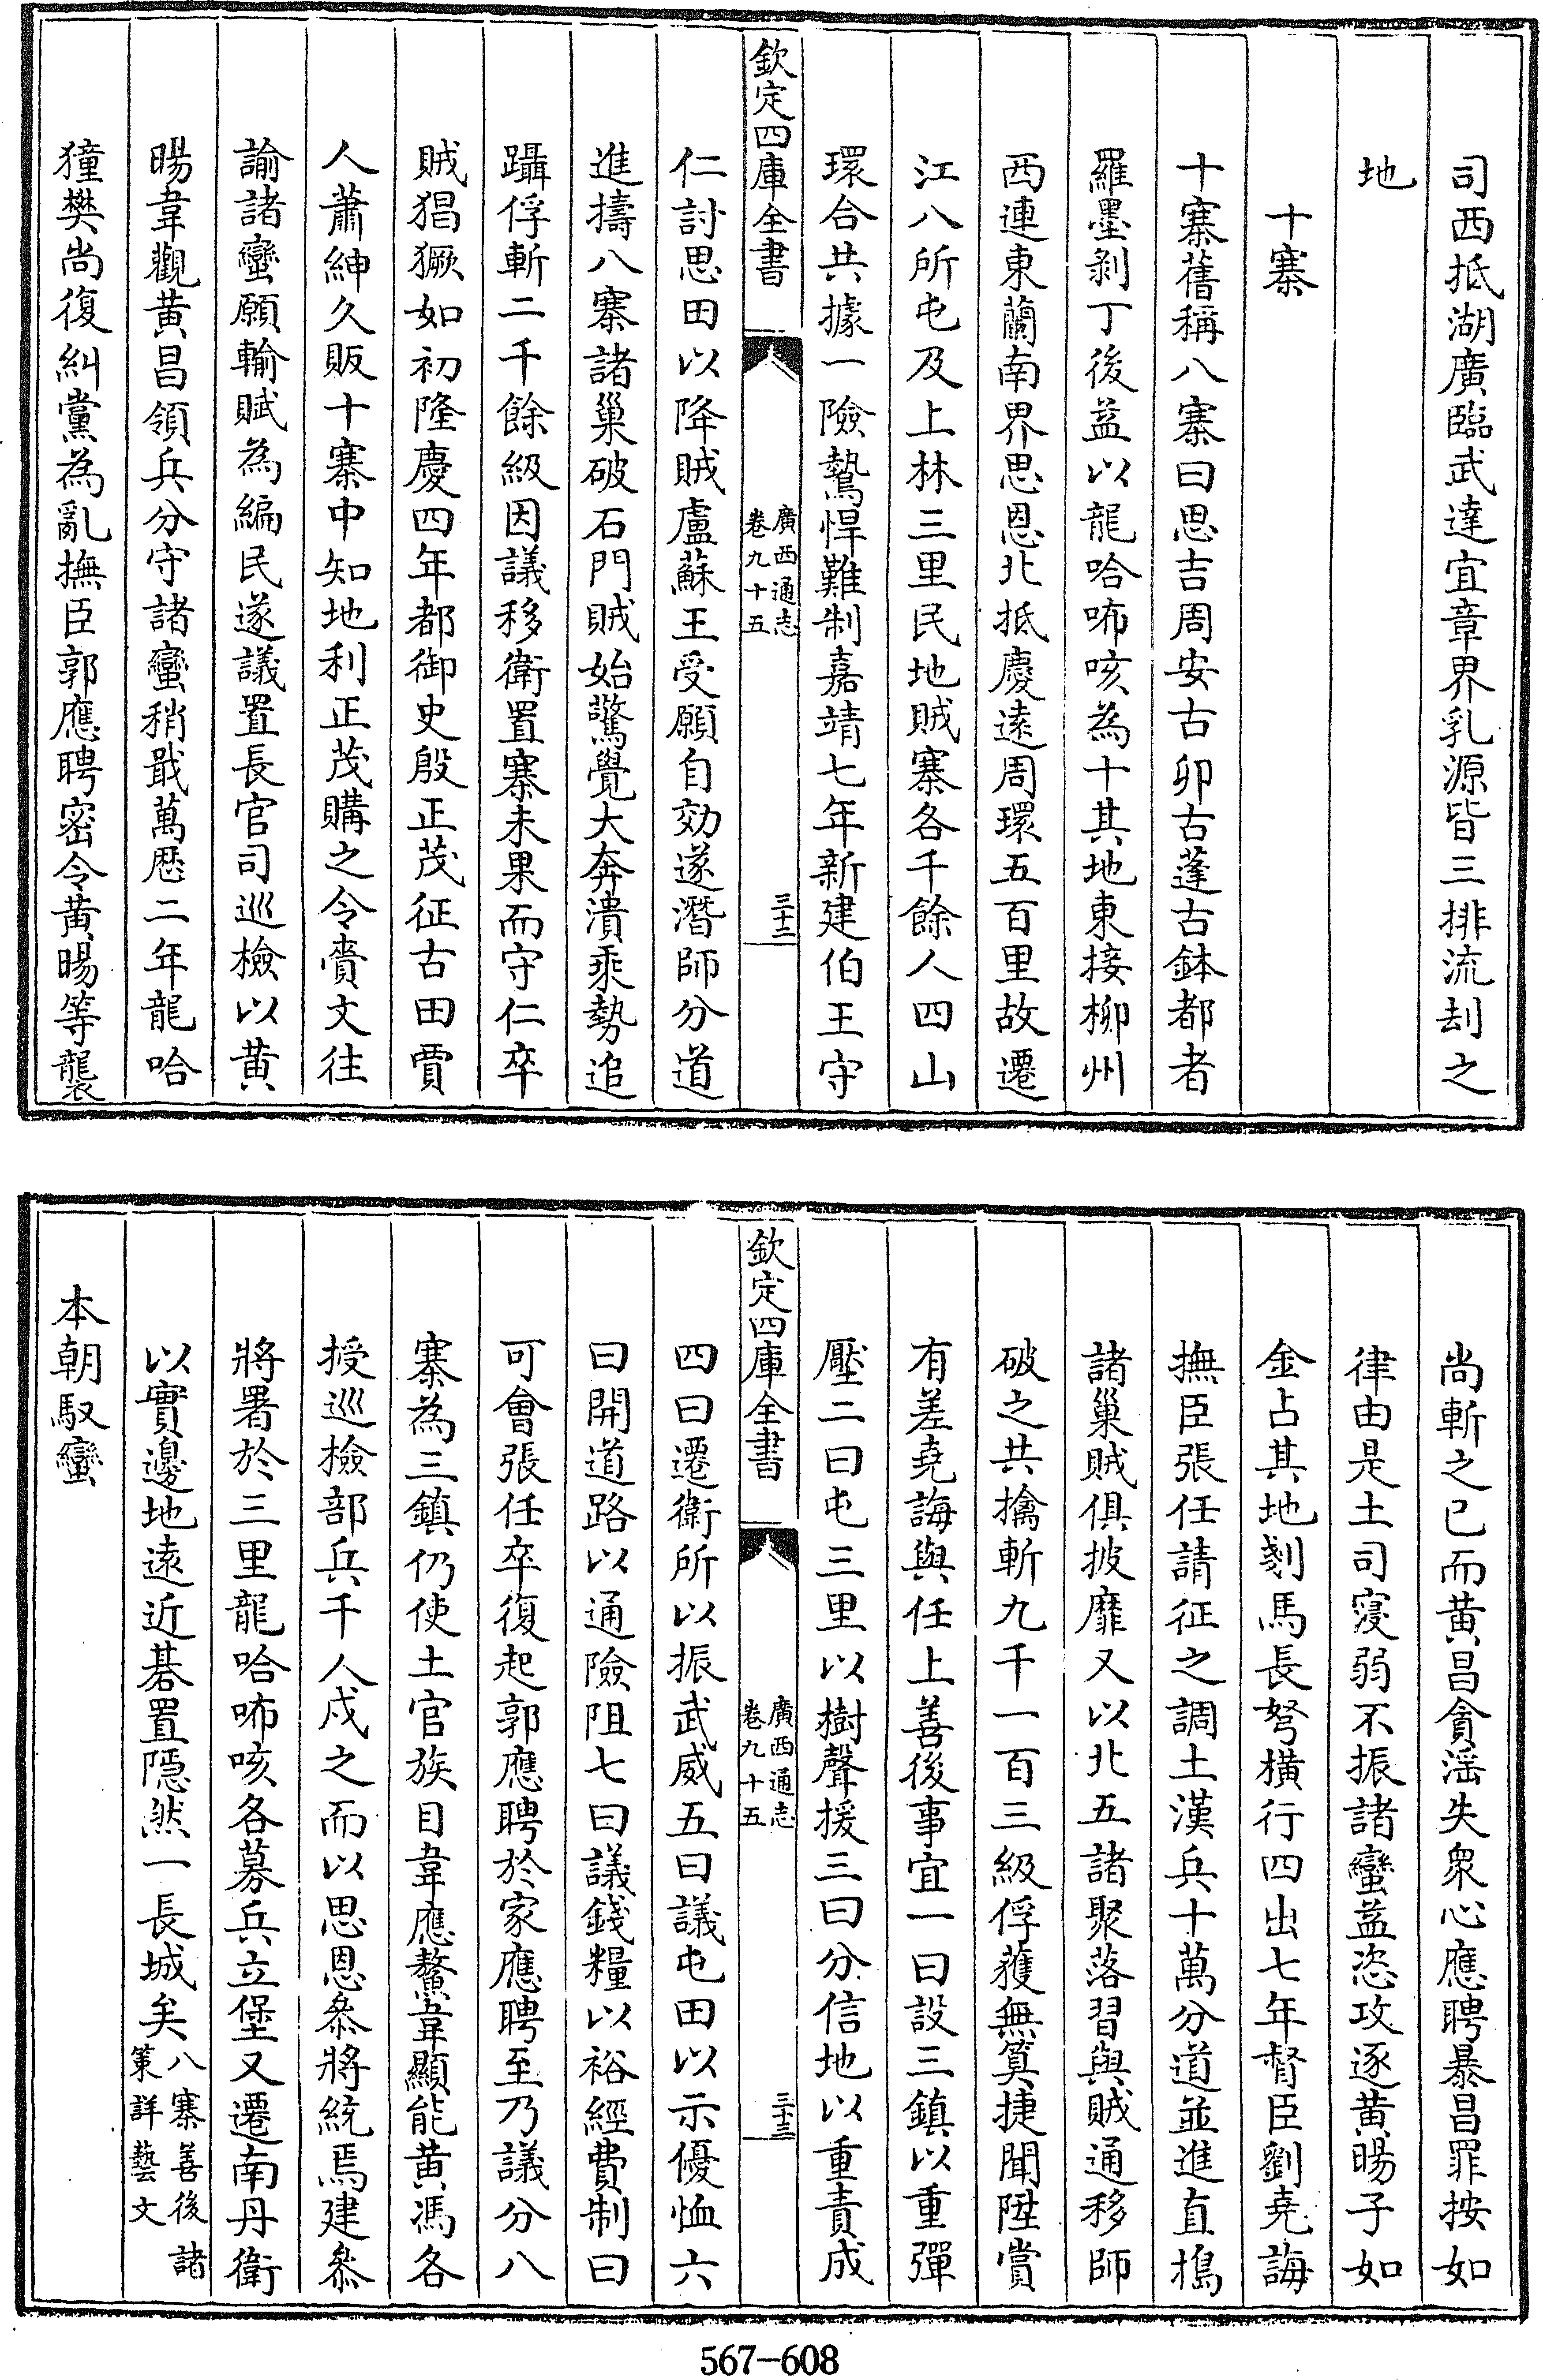 司西抵湖廣臨武達宜章界乳源皆三排流刦之
地
十寨
十寨舊稱八寨曰思吉周安古卯古蓬古鉢都者
羅墨剝丁後益以龍哈咘咳為十其地東接柳州
西連東蘭南界思恩北抵慶遠周環五百里故遷
江八所屯及上林三里民地賊寨各千餘人四山
環合共據一險鷙悍難制嘉靖七年新建伯王守
欽定四庫全書
廣西通志
卷九十五
三十二
仁討思田以降賊盧蘇王受願自効遂潛師分道
進擣八寨諸巢破石門賊始驚覺大奔潰乘勢追
躡俘斬二千餘級因議移衛置寨未果而守仁卒
賊猖獗如初隆慶四年都御史殷正茂征古田賈
人蕭紳久販十寨中知地利正茂購之令賫文往
諭諸蠻願輸賦為編民遂議置長官司巡檢以黄
暘韋觀黄昌領兵分守諸蠻稍戢萬厯二年龍哈
獞樊尚復糾黨為亂撫臣郭應聘密令黄暘等襲
尚斬之已而黄昌貪淫失衆心應聘暴昌罪按如
律由是土司寖弱不振諸蠻益恣攻逐黄暘子如
金占其地剗馬長弩橫行四出七年督臣劉堯誨
撫臣張任請征之調土漢兵十萬分道並進直搗
諸巢賊俱披靡又以北五諸聚落習與賊通移師
破之共擒斬九千一百三級俘獲無筭捷聞陞賞
有差堯誨與任上善後事宜一曰設三鎮以重彈
壓二曰屯三里以樹聲援三曰分信地以重責成
欽定四庫全書
廣西通志
卷九十五
三十三
四曰遷衛所以振武威五曰議屯田以示優恤六
曰開道路以通險阻七曰議錢糧以裕經費制曰
可會張任卒復起郭應聘於家應聘至乃議分八
寨為三鎮仍使土官族目韋應鰲韋顯能黄馮各
授巡檢部兵千人戍之而以思恩叅將統焉建叅
將署於三里龍哈咘咳各募兵立堡又遷南丹衛
以實邊地遠近碁置隱然一長城矣
八寨善後諸
策詳藝文
本朝馭蠻
567-608